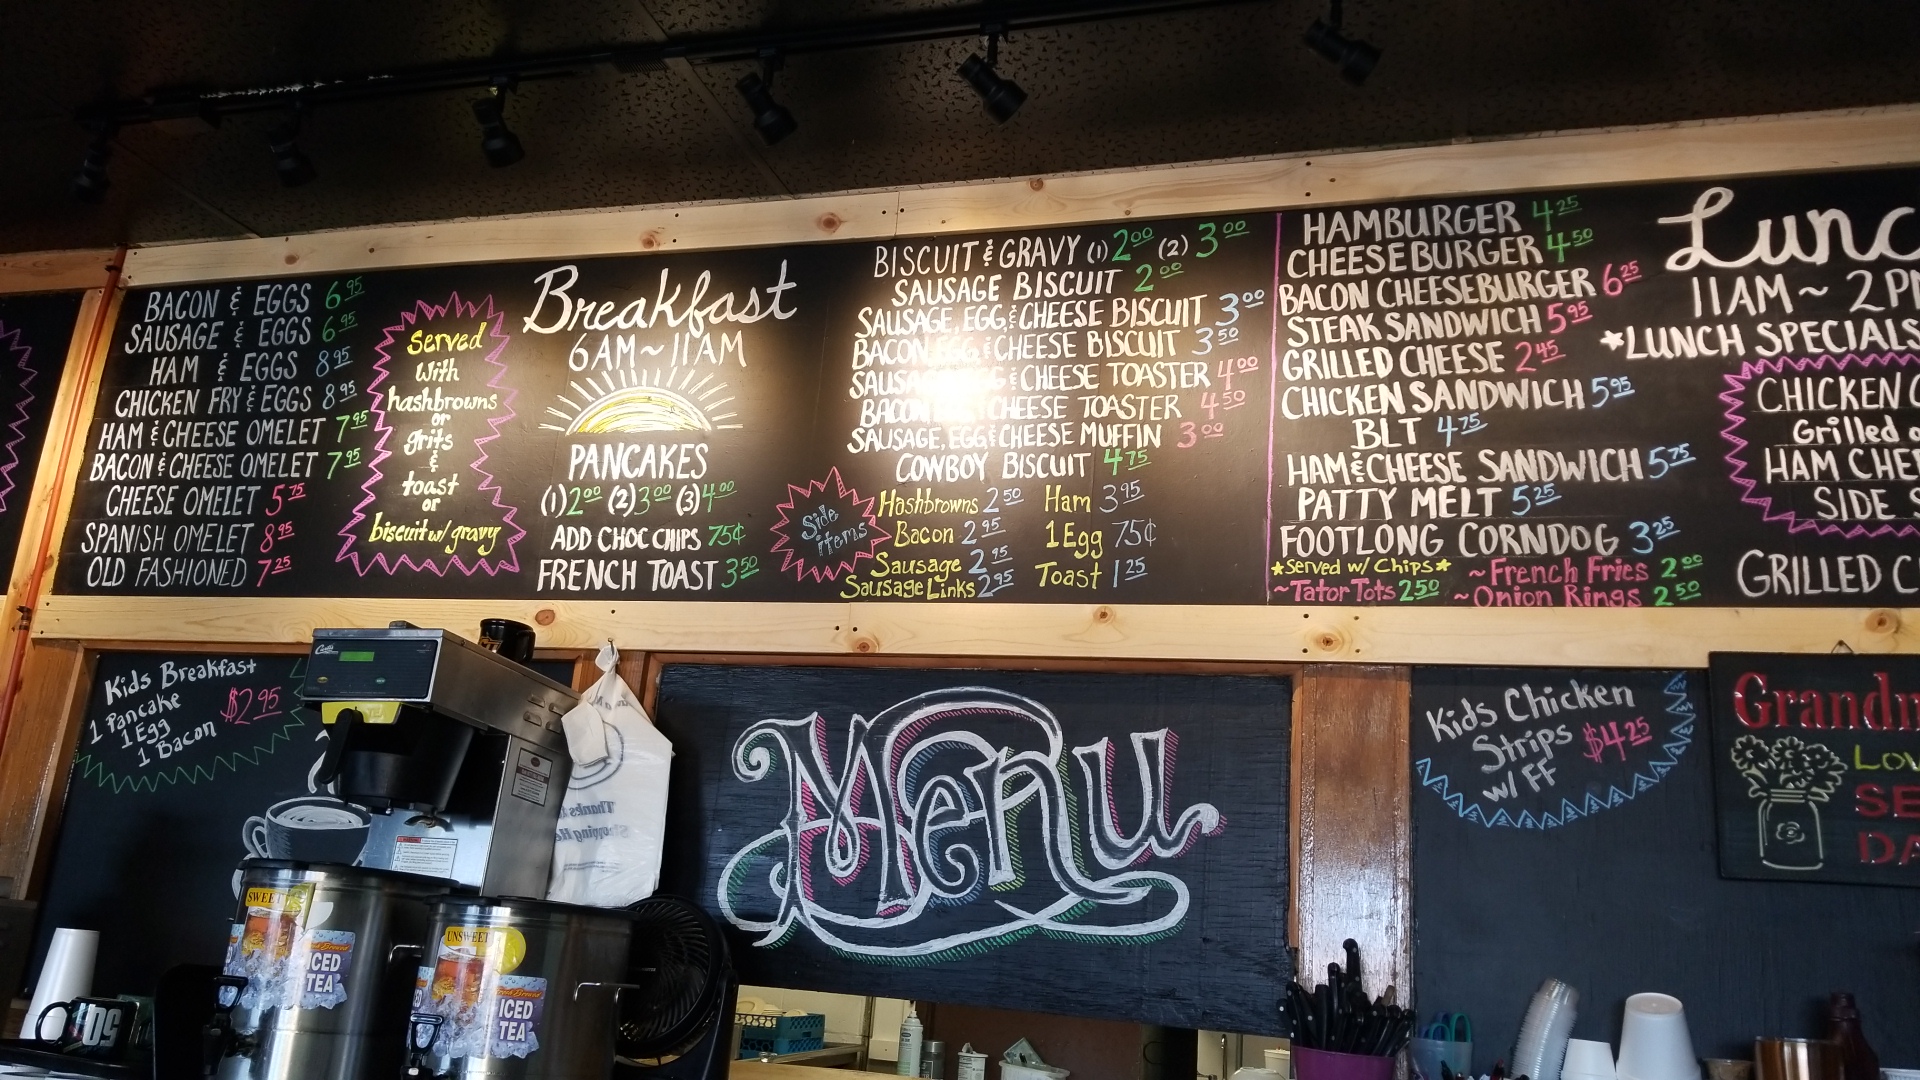 BACON & EGGS 6.95
SAUSAGE & EGGS 6.95
HAM & EGGS 8.95
CHICKEN FRY & EGGS 8.95
HAM & CHEESE OMELET 7.95
BACON & CHEESE OMELET 7.95
CHEESE OMELET 5.75
SPANISH OMELET 8.95
OLD FASHIONED 7.25
Served
with
hashbrowns
or
grits
&
toast
or
biscuit w/ gravy
Breakfast
6AM~11AM
PANCAKES
(1) 2.00 (2) 3.00 (3) 4.00
ADD CHOC CHIPS 75¢
FRENCH TOAST 3.50
BISCUIT & GRAVY (1) 2.00 (2) 3.00
SAUSAGE BISCUIT 2.00
SAUSAGE, EGG, & CHEESE BISCUIT 3.00
BACON, EGG, & CHEESE BISCUIT 3.50
& CHEESE TOASTER 4.00
BACON CHEESE TOASTER 4.50
SAUSAGE, EGG & CHEESE MUFFIN 3.00
COWBOY BISCUIT 4.75
Side
items
Hashbrowns 2.50 Ham 3.95
Bacon 2.95 1 Egg 75¢
Sausage 2.95
Sausage Links 2.95 Toast 1.25
HAMBURGER 4.25
CHEESEBURGER 4.50
BACON CHEESEBURGER 6.25
STEAK SANDWICH 5.95
GRILLED CHEESE 2.45
CHICKEN SANDWICH 5.95
BLT 4.75
HAM & CHEESE SANDWICH 5.75
PATTY MELT 5.25
FOOTLONG CORNDOG 3.25
*Served w/ Chips* ~French Fries 2.00
~Tator Tots 2.50 ~Onion Rings 2.50
11AM~2P
*LUNCH SPECIALS
CHICKEN
Grilled
HAM
SIDE
GRILLED
Kids Breakfast
1 Pancake $2.95
1 Egg
1 Bacon
Menu
Kids Chicken
Strips $4.25
w/ FF
SWEET
ICED
TEA
UNSWEET
ICED
TEA